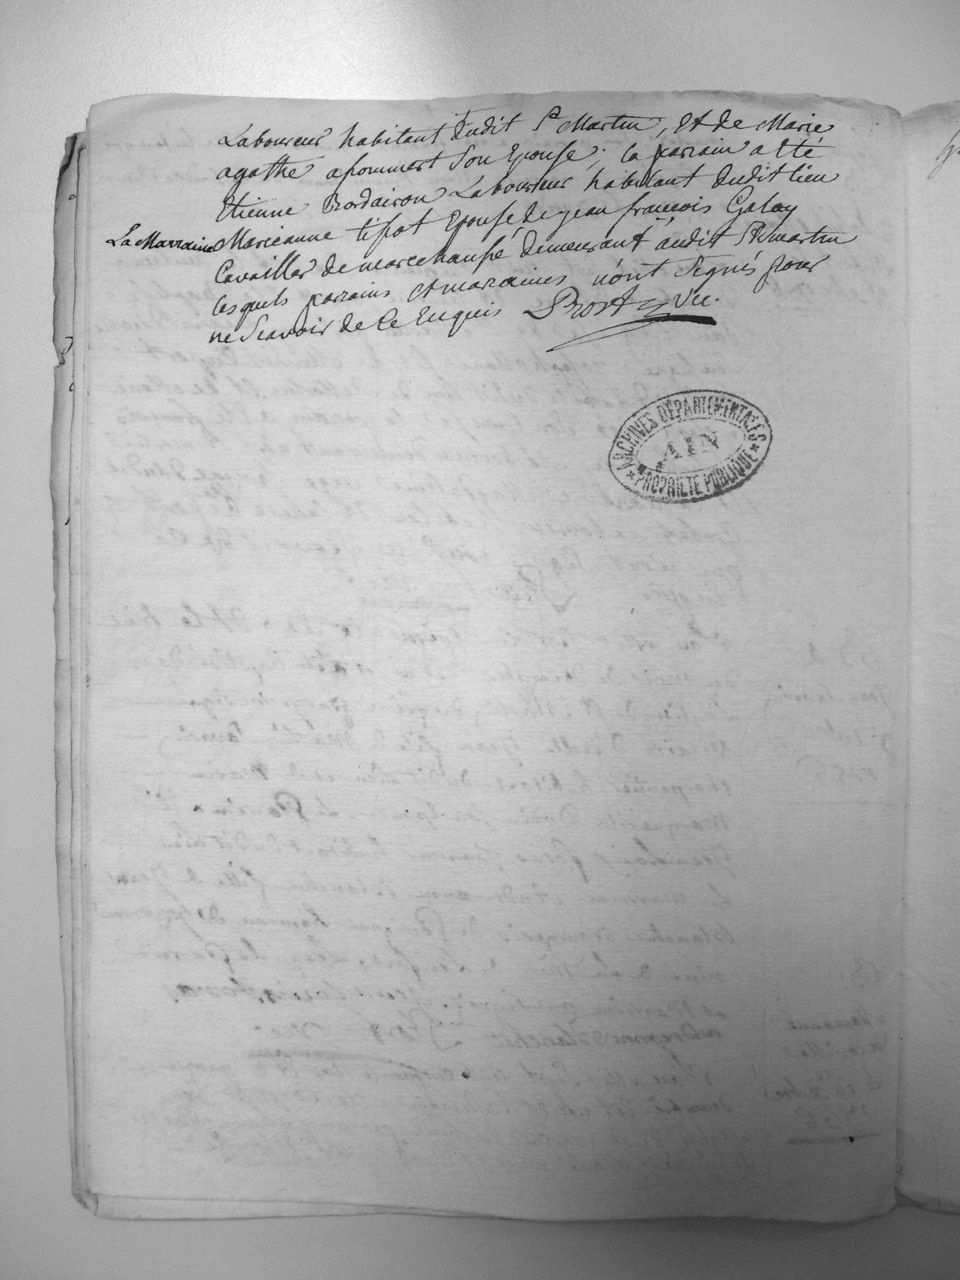 Laboureur habitant dudit St Martin, et de Marie
agathe aponmert Son Epouse; le parrain a été
Etienne Bordairon Laboureur habitant dudit lieu
La Marraine Marieanne tifot Epouse de jean françois Galay
Cavailler de marechaussé demeurant audit St martin
lesquels parrains et maraines n'ont Signés pour
ne Scavoir de Ce Enquis Prost Vic.
ARCHIVES DÉPARTEMENTALES
AIN
PROPRIÉTÉ PUBLIQUE